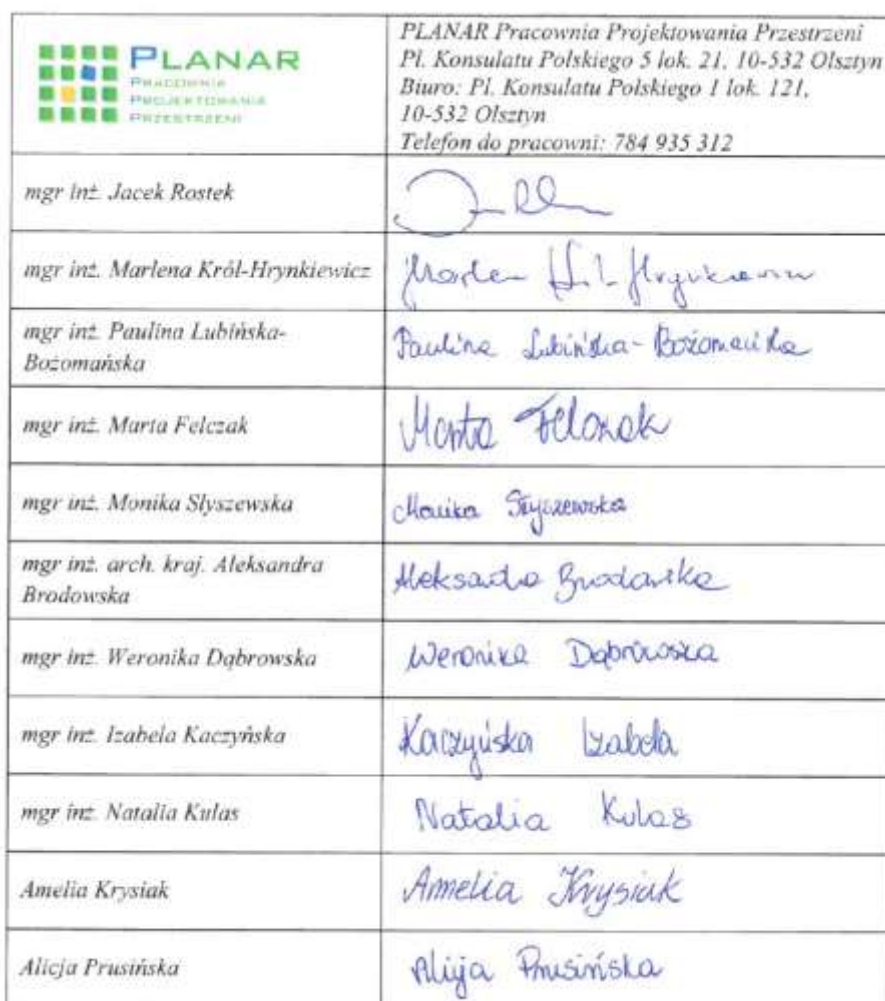 PLANAR
PRACOWNIA
PROJEKTOWANIA
PRZESTRZENI
PLANAR Pracownia Projektowania Przestrzeni
Pl. Konsulatu Polskiego 5 lok. 21, 10-532 Olsztyn
Biuro: Pl. Konsulatu Polskiego 1 lok. 121,
10-532 Olsztyn
Telefon do pracowni: 784 935 312
mgr inż. Jacek Rostek
mgr inż. Marlena Król-Hrynkiewicz
mgr inż. Paulina Lubińska-
Bożomańska
Paulina Lubińska-Bożomańska
mgr inż. Marta Felczak
Marta Felczak
mgr inż. Monika Słyszewska
Monika Słyszewska
mgr inż. arch. kraj. Aleksandra
Brodowska
Aleksandra Brodowska
mgr inż. Weronika Dąbrowska
Weronika Dąbrowska
mgr inż. Izabela Kaczyńska
Kaczyńska Izabela
mgr inż. Natalia Kulas
Natalia Kulas
Amelia Krysiak
Amelia Krysiak
Alicja Prusińska
Alicja Prusińska